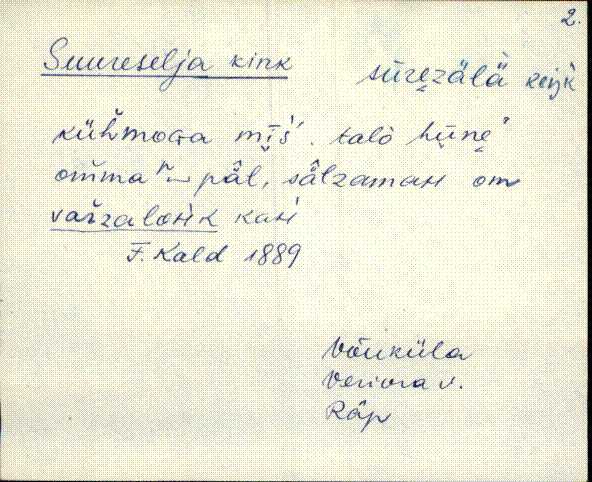 2.
Suureselja kink sūrezälä keŋk
kühmoota mīš. talo hūne
omma päl, sälzaman om
vašzalonk kan
F. Kald 1889
Võuküla
Veriora v.
Räp